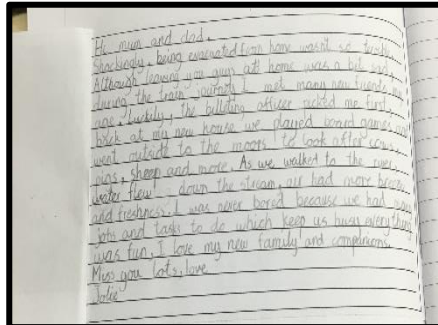 Hi mum and dad,
Shockingly, being evacuated from home wasn't so
Although leaving you guys at home was a bit sad,
during the train journey I met many new friends my
age. Luckily, the billeting officer picked me first,
back at my new house we played board games and
went outside to the moors to look after cows,
pigs, sheep and more. As we walked to the river,
water flew down the stream, air had more
and freshness. I was never bored because we had
jobs and tasks to do which keep us busy everything
was fun. I love my new family and companions.
Miss you lots, love